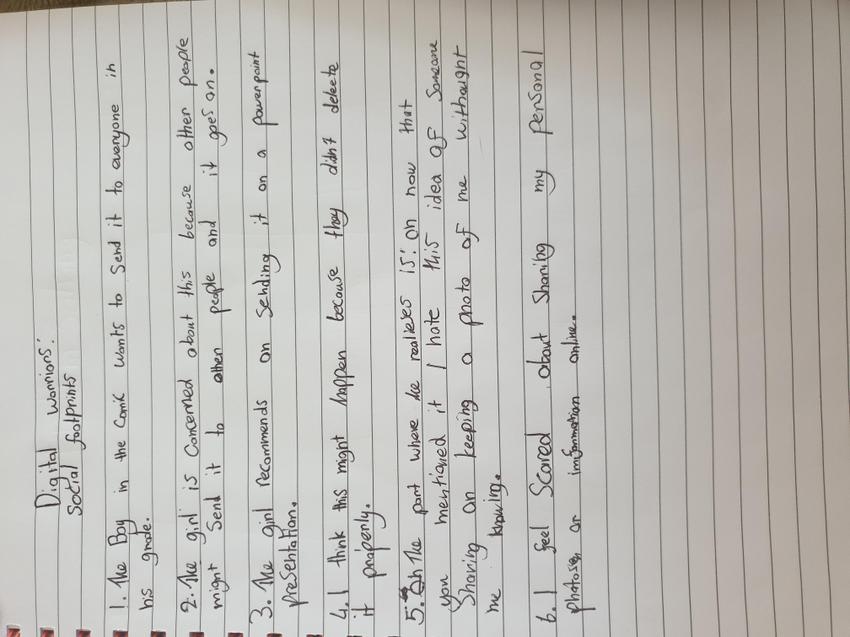 Digital Warriors:
Social footprints
1. The Boy in the comic wants to send it to everyone in
his grade.
2. The girl is concerned about this because other people
might send it to other people and it goes on.
3. The girl recommends on sending it on a powerpoint
presentation.
4. I think this might happen because they didn't delete
it properly.
5. On the part where he realises is: oh now that
you mentioned it I hate this idea of someone
Sharing or keeping a photo of me withought
me knowing.
6. I feel scared about sharing my personal
photos or information online.